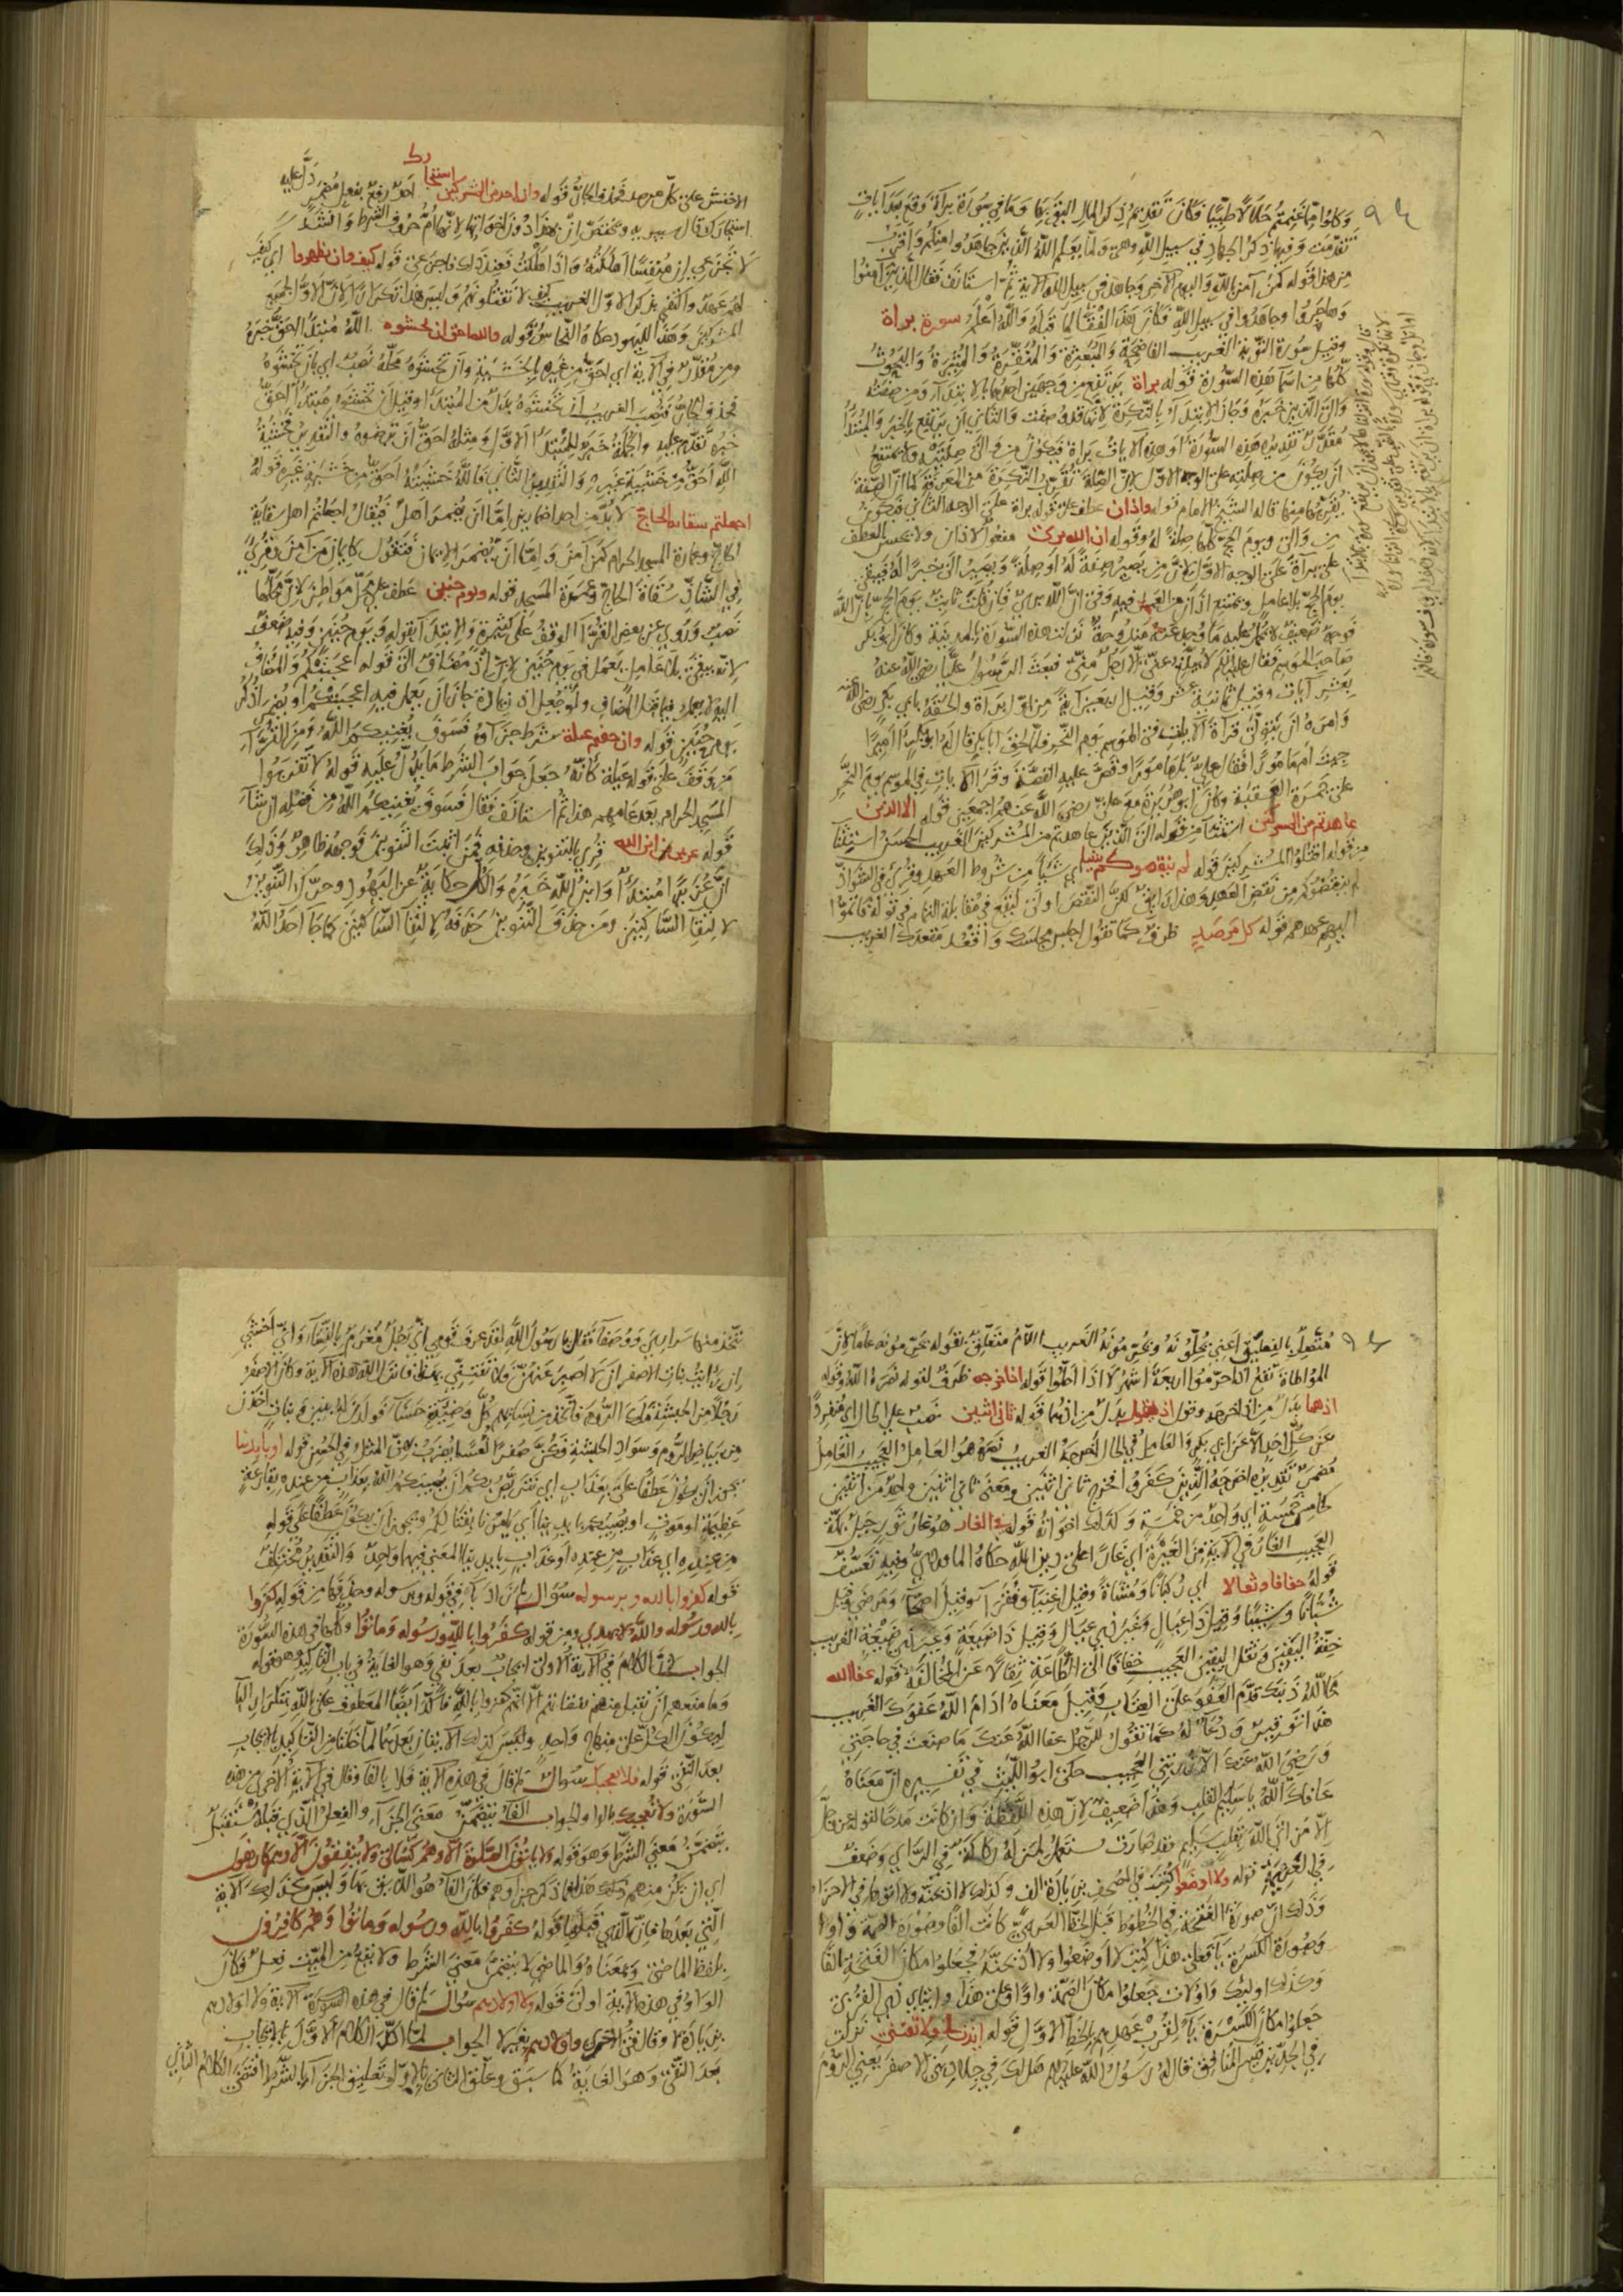 وكلوا مما غنمتم حلالا طيبا فكان تقديم ذكر المال اليق بها وما في سورة براة وقع بعد آيات
تقدمت وفيها ذكر الجهاد في سبيل الله وهي ولما يعلم الله الذين جاهدوا منكم واقرب
من هذا قوله كمن آمن بالله واليوم الآخر وجاهد في سبيل الله الآية ثم استانف فقال الذين آمنوا
وهاجروا وجاهدوا في سبيل الله فكان هذا لما قبله والله أعلم سورة براة
وقيل سورة التوبة الغريب الفاضحة والمبعثرة والمنقرة والمثيرة والبحوث
كلها من اسما هذه السورة قوله براة يرتفع من وجهين احدهما بالابتدآء ومن صفته
والى الذين خبره وجاز الابتدآء بالنكرة لانها قد وصفت والثاني ان يرتفع بالخبر والمبتدأ
مقدر تقديره هذه السورة او هذه الايات براة فيكون من والى صلته ولا يمتنع
ان يكون من صلته على الوجه الاول لان الصلة تقرب النكرة من المعرفة كما ان الصفة
تقربها منها قاله الشيخ الامام قوله واذان عطف على قوله براة على الوجه الثاني فيكون
من والى ويوم الحج كلها صلة له وقوله ان الله بريء مفعول الاذان ولا يحسن العطف
على براة على الوجه الاول لان من يصير صفة له او صلة ويصير الى خبرا له فيبقى
يوم الحج بلا عامل ويمتنع اذان من العمل فيه وفي ان الله بريء فان قلت ثابت يوم الحج بان الله
فوجه ضعيف لا يحمل عليه ما وجد عنه مندوحة نزلت هذه السورة بالمدينة وكان ابو بكر
صاحب الموسم فقال عليه السلم لا يبلغ عني الا رجل مني فبعث الرسول عليا رضي الله عنه
بعشر آيات وقيل ثمانية عشر وقيل اربعين آية من اول براة والحقه بابي بكر رضي الله عنه
وامره ان يتولى قرآة الايات في الموسم يوم النحر فلما لحق ابا بكر قال له ابو بكر اميرا
جيت ام مامورا فقال علي بل مامورا وقص عليه القصة وقرا الايات في الموسم يوم النحر
على جمرة العقبة وكان ابو هريرة مع علي رضي الله عنهم اجمعين قوله الا الذين
عاهدتم من المشركين استثنآ من قوله الى الذين عاهدتم من المشركين الغريب الحسن استثنآ
من قوله اقتلوا المشركين قوله لم ينقصوكم شيا اي شيا من شروط العهد وقرى في الشواذ
لم ينقضوكم من نقض العهد وهذا لايق لكن النقص اولى ليقع في مقابلة التمام في قوله فاتموا
اليهم عهدهم قوله كل مرصد ظرف كما تقول اجلس مجلسك واقعد مقعدك الغريب
الاخفش على كل مرصد فحذف الجار قوله وان احد من المشركين استجارك احد رفع بفعل مضمر دل عليه
استجارك قال سيبويه ومختص ان بهذا دون اخواتها لانها ام حروف الشرط وانشد
لا تجزعي ان منفسا اهلكته واذا هلكت فعند ذلك فاجزعي قوله كيف وان يظهروا اي كيف
لهم عهد واكتفى بذكر الاول الغريب كيف لا تقتلونهم وليس هذا تكرارا لان الاول لجميع
المشركين وهذا لليهود حكاه النحاس قوله والله احق ان تخشوه الله مبتدأ احق خبره
ومن مقدر في الآية اي احق من غيره بالخشية وان تخشوه محله نصب اي بان تخشوه
فحذف الجار فنصب الغريب ان تخشوه بدل من المبتدأ وقيل ان تخشوه مبتدأ احق
خبره تقدم عليه والجملة خبر للمبتدأ الاول ومثله احق ان ترضوه والتقدير خشية
الله احق من خشية غيره والتقدير الثاني فالله خشيته احق من خشية غيره قوله
اجعلتم سقاية الحاج لا بد من احد اضمارين اما ان يضمر اهل فيقال اجعلتم اهل سقاية
الحاج وعمارة المسجد الحرام كمن آمن واما ان يضمر الايمان فتقول كايمان من آمن وقرئ
في الشاذ سقاة الحاج وعمرة المسجد قوله ويوم حنين عطف على محل مواطن لان محلها
نصب وروي عن بعض القرآ الوقف على كثيرة والابتدآ بقوله ويوم حنين وفيه ضعف
لانه يبقى بلا عامل يعمل في يوم حنين لان اذ مضاف الى قوله اعجبتكم والمضاف
اليه لا يعمل فيما قبل المضاف ولو جعل اذ زيادة جاز ان يعمل فيه اعجبتكم او يضمر اذكر
يوم حنين قوله وان خفتم عيلة شرط جزآوه فسوف يغنيكم الله ومن القرآء
من وقف على قوله عيلة كانه جعل جواب الشرط ما يدل عليه قوله لا تقربوا
المسجد الحرام بعد عامهم هذا ثم استانف فقال فسوف يغنيكم الله من فضله ان شآء
قوله عزير ابن الله قرئ بالتنوين وحذفه فمن اثبت التنوين فوجهه ظاهر وذلك
ان عزيرا مبتدأ وابن الله خبره والكل حكاية عن اليهود وحرك التنوين
لالتقا الساكنين ومن حذف التنوين حذفه لالتقا الساكنين كما جا احد الله
متصل بالفعلين اعني يحلونه ويحرمونه الغريب اللام متعلق بقوله يحرمونه عاما لان
المواطاة تقع اذا حرموا اربعة اشهر لا اذا احلوا قوله اذ اخرجه ظرف لقوله نصره الله وقوله
اذ هما بدل من اذ اخرجه وقوله اذ يقول بدل من اذ هما قوله ثاني اثنين نصب على الحال اي منفردا
عن كل احد الا عن ابي بكر والعامل في الحال اخرجه الغريب نصره هو العامل العجيب العامل
مضمر تقديره اخرجه الذين كفروا فخرج ثاني اثنين ومعنى ثاني اثنين واحد من اثنين
كخامس خمسة اي واحد من خمسة وكذلك اخواته قوله في الغار هو غار ثور جبل بمكة
العجيب الغار في الآية من الغيرة اي غارا على دين الله حكاه الماوردي وفيه تعسف
قوله خفافا وثقالا اي ركبانا ومشاة وقيل اغنيآ وفقرآ وقيل اصحآ ومرضى وقيل
شبانا وشيبا وقيل ذا عيال وغير ذي عيال وقيل ذا ضيعة وغير ذي ضيعة الغريب
خفة اليقين وثقل اليقين العجيب خفافا الى الطاعة ثقالا عن المخالفة قوله عفا الله
محا الله ذنبك قدم العفو على العتاب وقيل معناه ادام الله عفوك الغريب
هذا توقير ودعآ له كما تقول للرجل عفا الله عنك ما صنعت في حاجتي
ورضي الله عنك الا زرتني العجيب حكى ابو الليث في تفسيره ان معناه
عافاك الله يا سليم القلب وهذا ضعيف لان هذه اللفظة وان كانت مدحا لقوله عز وجل
الا من اتى الله بقلب سليم فقد صارت تستعمل لمن له ركاكة في الراي وضعف
في العزيمة قوله ولا اوضعوا كتب في المصحف بزيادة الف وكذلك لا اذبحنه ولا اتوها في الاحزاب
وذلك ان صورة الفتحة في الخطوط قبل الخط العربي كانت الفا وصورة الضمة واوا
وصورة الكسرة يآ فعلى هذا كتب لا اوضعوا ولا اذبحنه فجعلوا مكان الفتحة الفا
وكذلك اوليك واولات جعلوا مكان الضمة واوا وعلى هذا وايتاي ذي القربى
جعلوا مكان الكسرة يآ لقرب عهدهم بالخط الاول قوله ايذن لي ولا تفتني نزلت
في الجد بن قيس المنافق قال له رسول الله عليه السلم هل لك في جلاد بني الاصفر يعني الروم
تتخذ منها سراري ووصفآ فقال يا رسول الله لقد عرف قومي اني رجل مغرم بالنسآء واني اخشى
ان رايت بنات الاصفر ان لا اصبر عنهن فلا تفتني بهن فانزل الله هذه الآية وكان الاصفر
رجلا من الحبشة ملك الروم فاتخذ من نسايهم كل وضيئة حسنآ فولدن له بنين وبنات اخذن
من بياض الروم وسواد الحبشة فكن صفرا لعسا يضرب بهن المثل في الحسن قوله او بايدينا
يجوز ان يكون عطفا على بعذاب اي نتربص بكم ان يصيبكم الله بعذاب من عنده بقارعة
عظيمة او موت او يصيبكم بايدينا اي يامرنا بقتالكم ويجوز ان يكون عطفا على قوله
من عنده اي عذاب من عنده او عذاب بايدينا المعنى فيهما واحد والتقدير مختلف
قوله كفروا بالله وبرسوله سؤال لم زاد بآ في قوله وبرسوله وحذفها من قوله كفروا
بالله ورسوله والله لا يهدي ومن قوله كفروا بالله ورسوله وماتوا وكلها في هذه السورة
الجواب لان الكلام في الآية الاولى ايجاب بعد نفي وهو الغاية في باب التاكيد وهو قوله
وما منعهم ان تقبل منهم نفقاتهم الا انهم كفروا بالله فاكد ايضا المعطوف على بالله بتكرار البا
ليكون الكل على منهاج واحد وليس كذلك الآيتان بعدهما لما خلتا من التاكيد بالايجاب
بعد النفي قوله فلا تعجبك سوال لم قال في هذه الآية فلا بالفا وقال في الآية الاخرى من هذه
السورة ولا تعجبك بالواو الجواب الفآ تتضمن معنى الجزآء والفعل الذي قبله مستقبل
يتضمن معنى الشرط وهو قوله ولا ياتون الصلوة الا وهم كسالى ولا ينفقون الا وهم كارهون
اي ان يكن منهم ذلك فجزاوهم فكان الفآ هو اللايق بها وليس كذلك الآية
التي بعدها فان التي قبلها قوله كفروا بالله ورسوله وماتوا وهم كافرون
بلفظ الماضي وبمعناه والماضي لا يتضمن معنى الشرط ولا يقع من الميت فعل فكان
الواو في هذه الآية اولى قوله ولا اولادهم سوال لم قال في هذه السورة الآية ولا اولادهم
بزيادة لا وقال في الاخرى واولادهم بغير لا الجواب لما اكد الكلام الاول بالايجاب
بعد النفي وهو الغاية كما سبق وعلق الثاني بالاول تعليق الجزآء بالشرط اقتضى الكلام الثاني